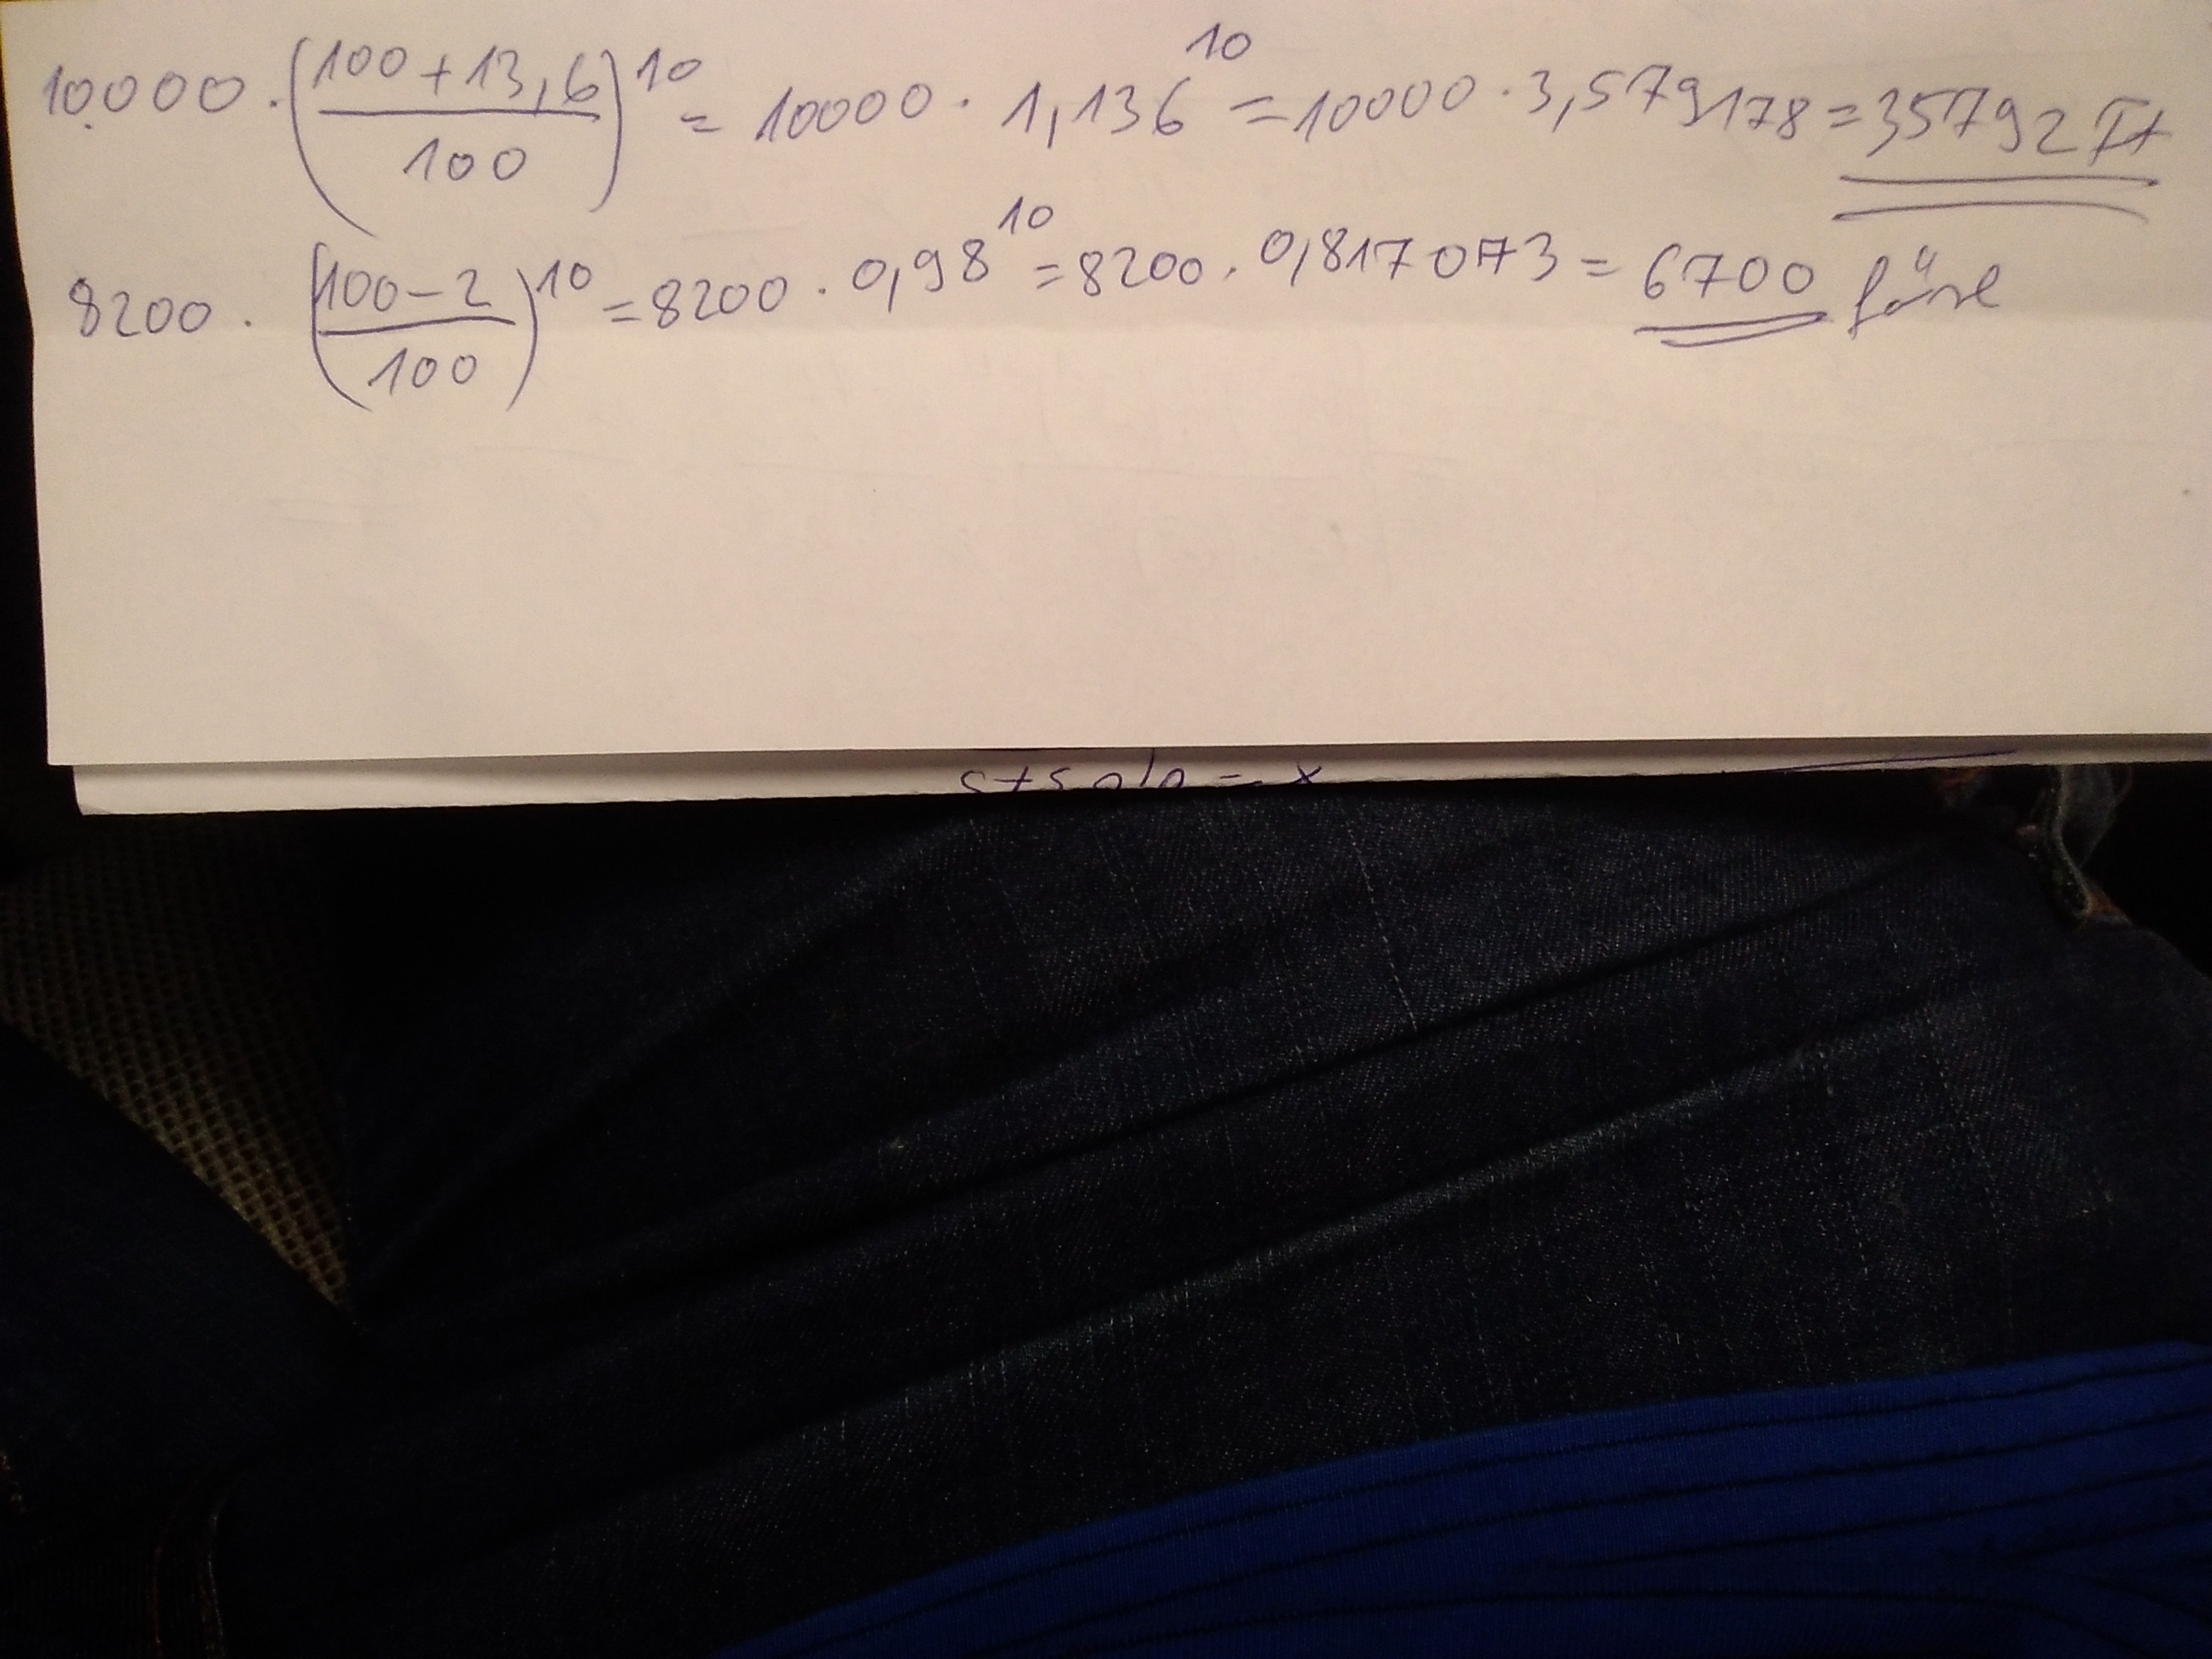 10.000 · (100+13,6/100)^10 = 10000 · 1,136^10 = 10000 · 3,579178 = 35792 Ft
8200 · (100-2/100)^10 = 8200 · 0,98^10 = 8200 · 0,817073 = 6700 főre